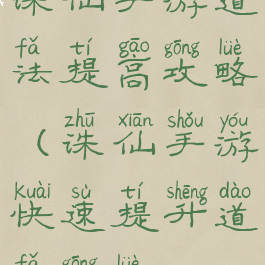 诛仙手游道
fǎ tí gāo gōng lüè
法提高攻略
zhū xiān shǒu yóu
(诛仙手游
kuài sù tí shēng dào
快速提升道
fǎ gōng lüè